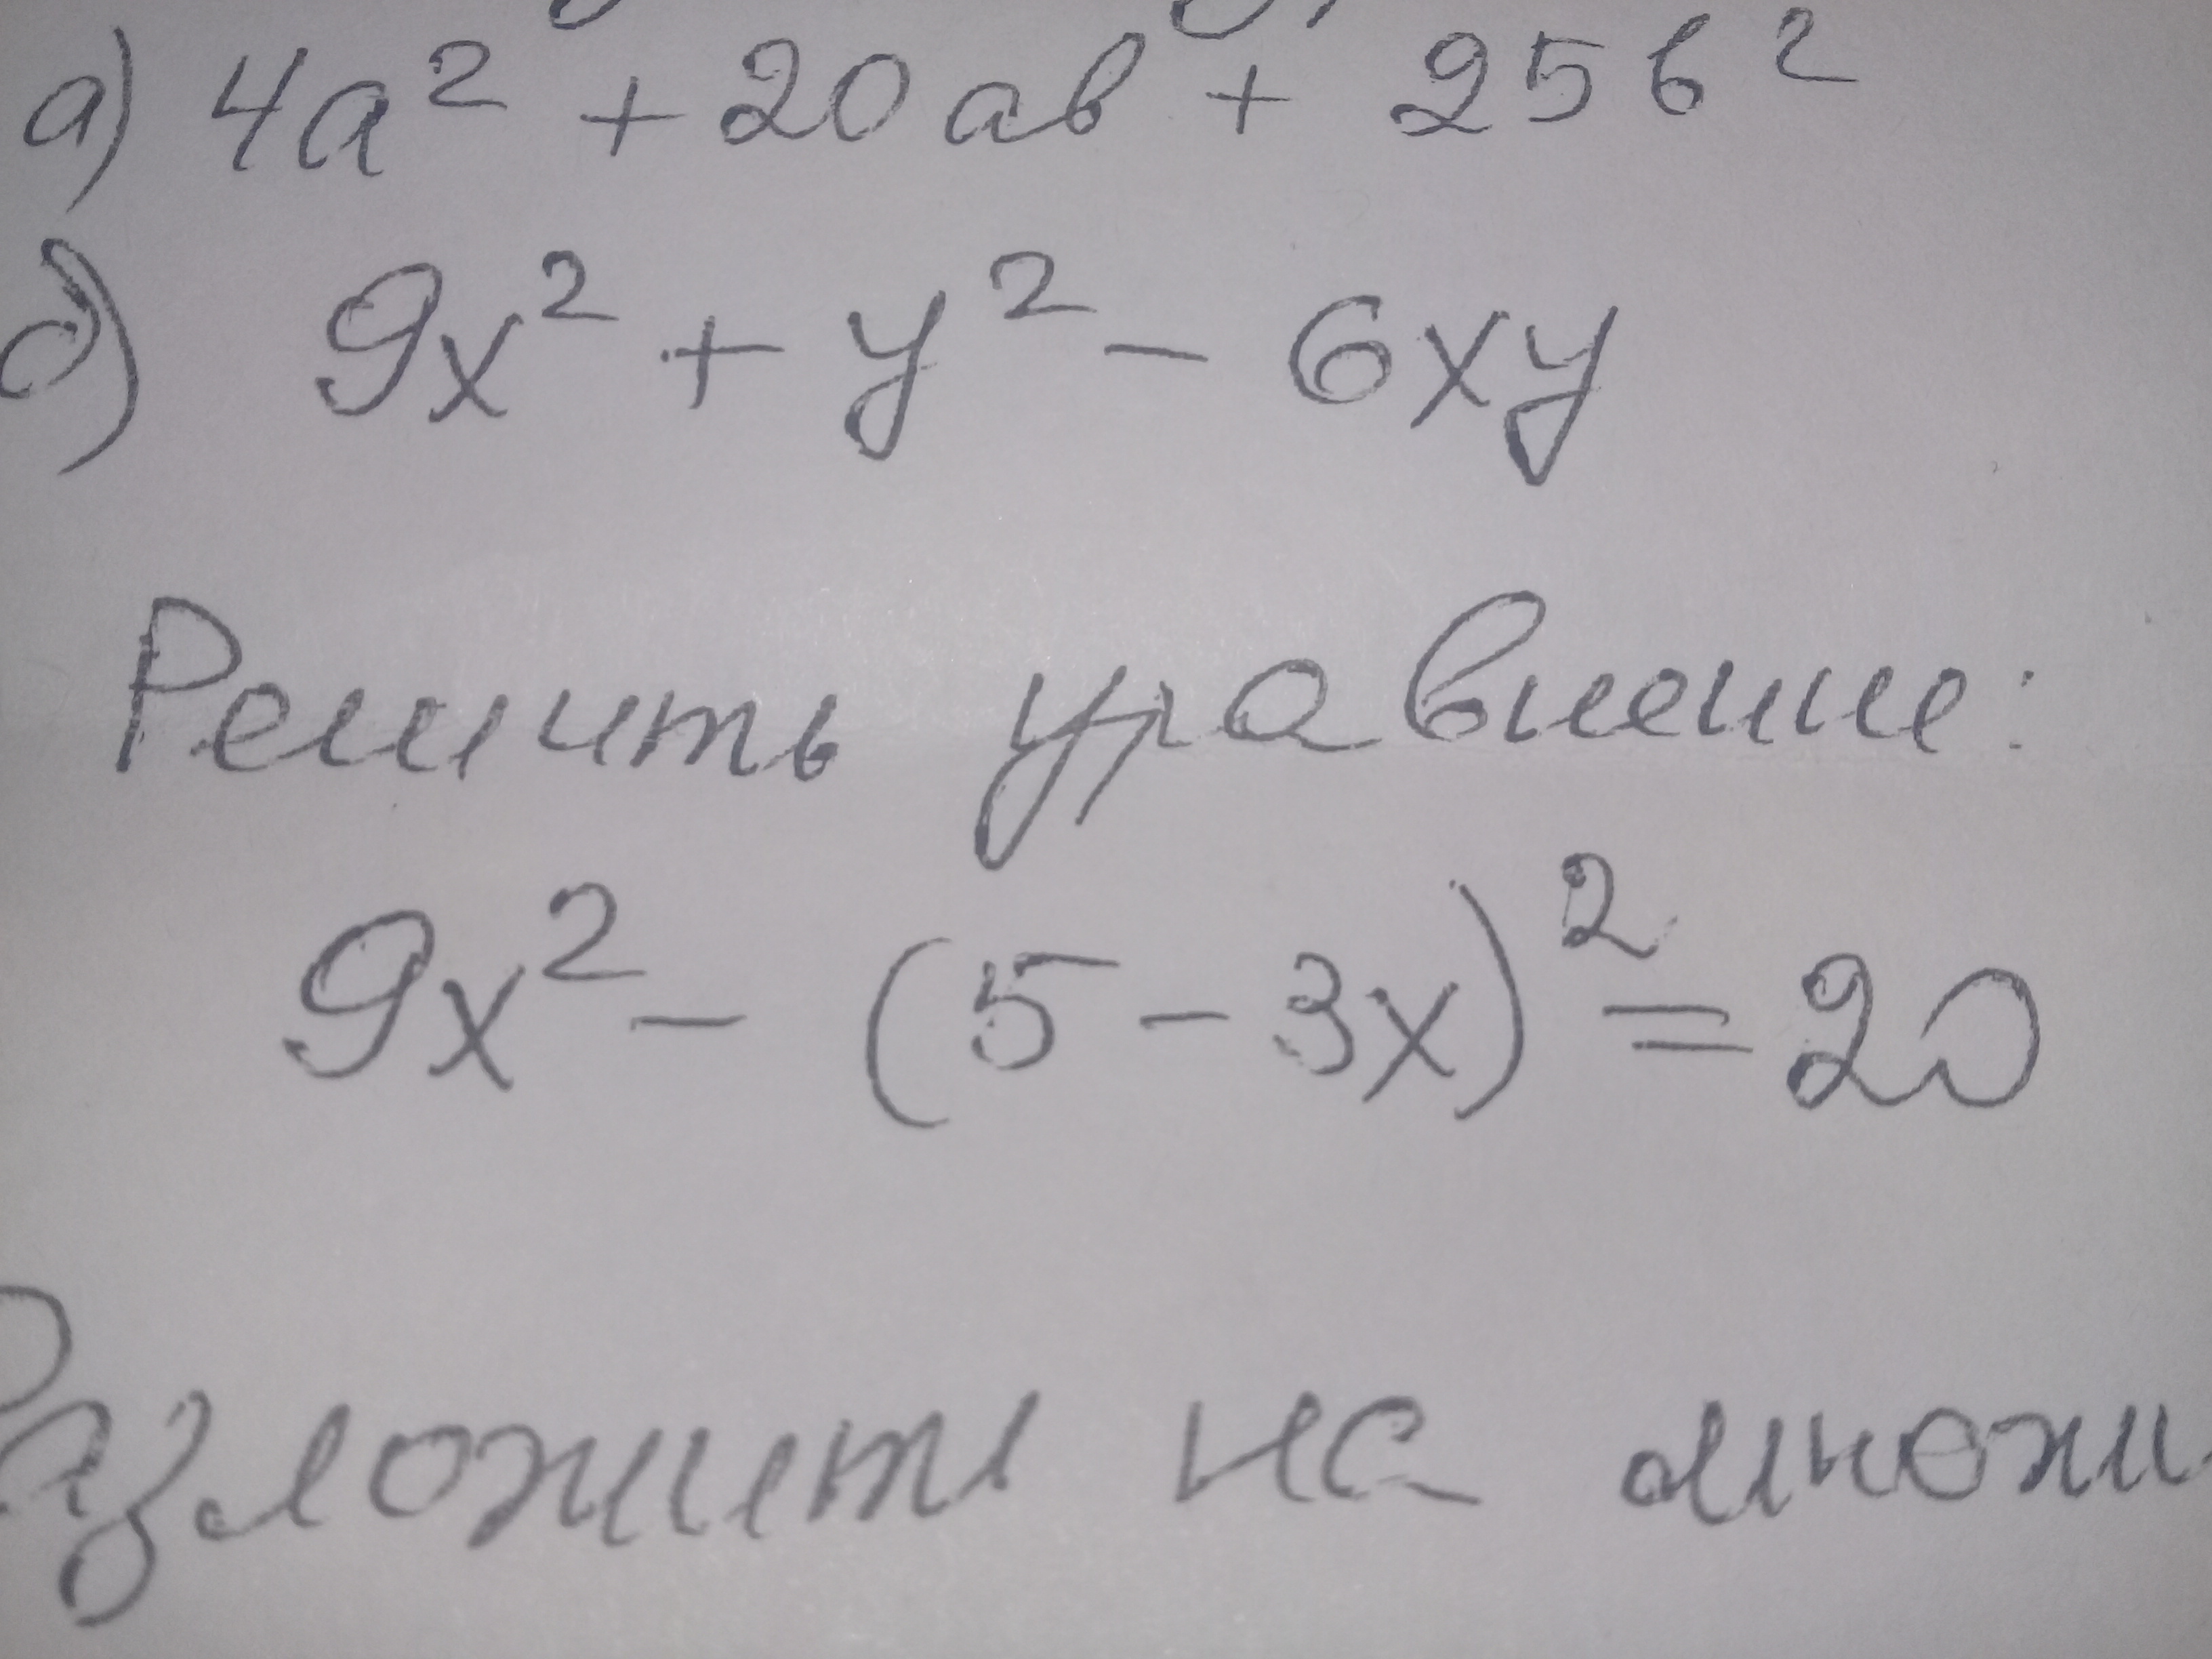 а) 4a² + 20ab + 25b²
б) 9x² + y² - 6xy
Решить уравнение:
9x² - (5 - 3x)² = 20
Разложить на множи